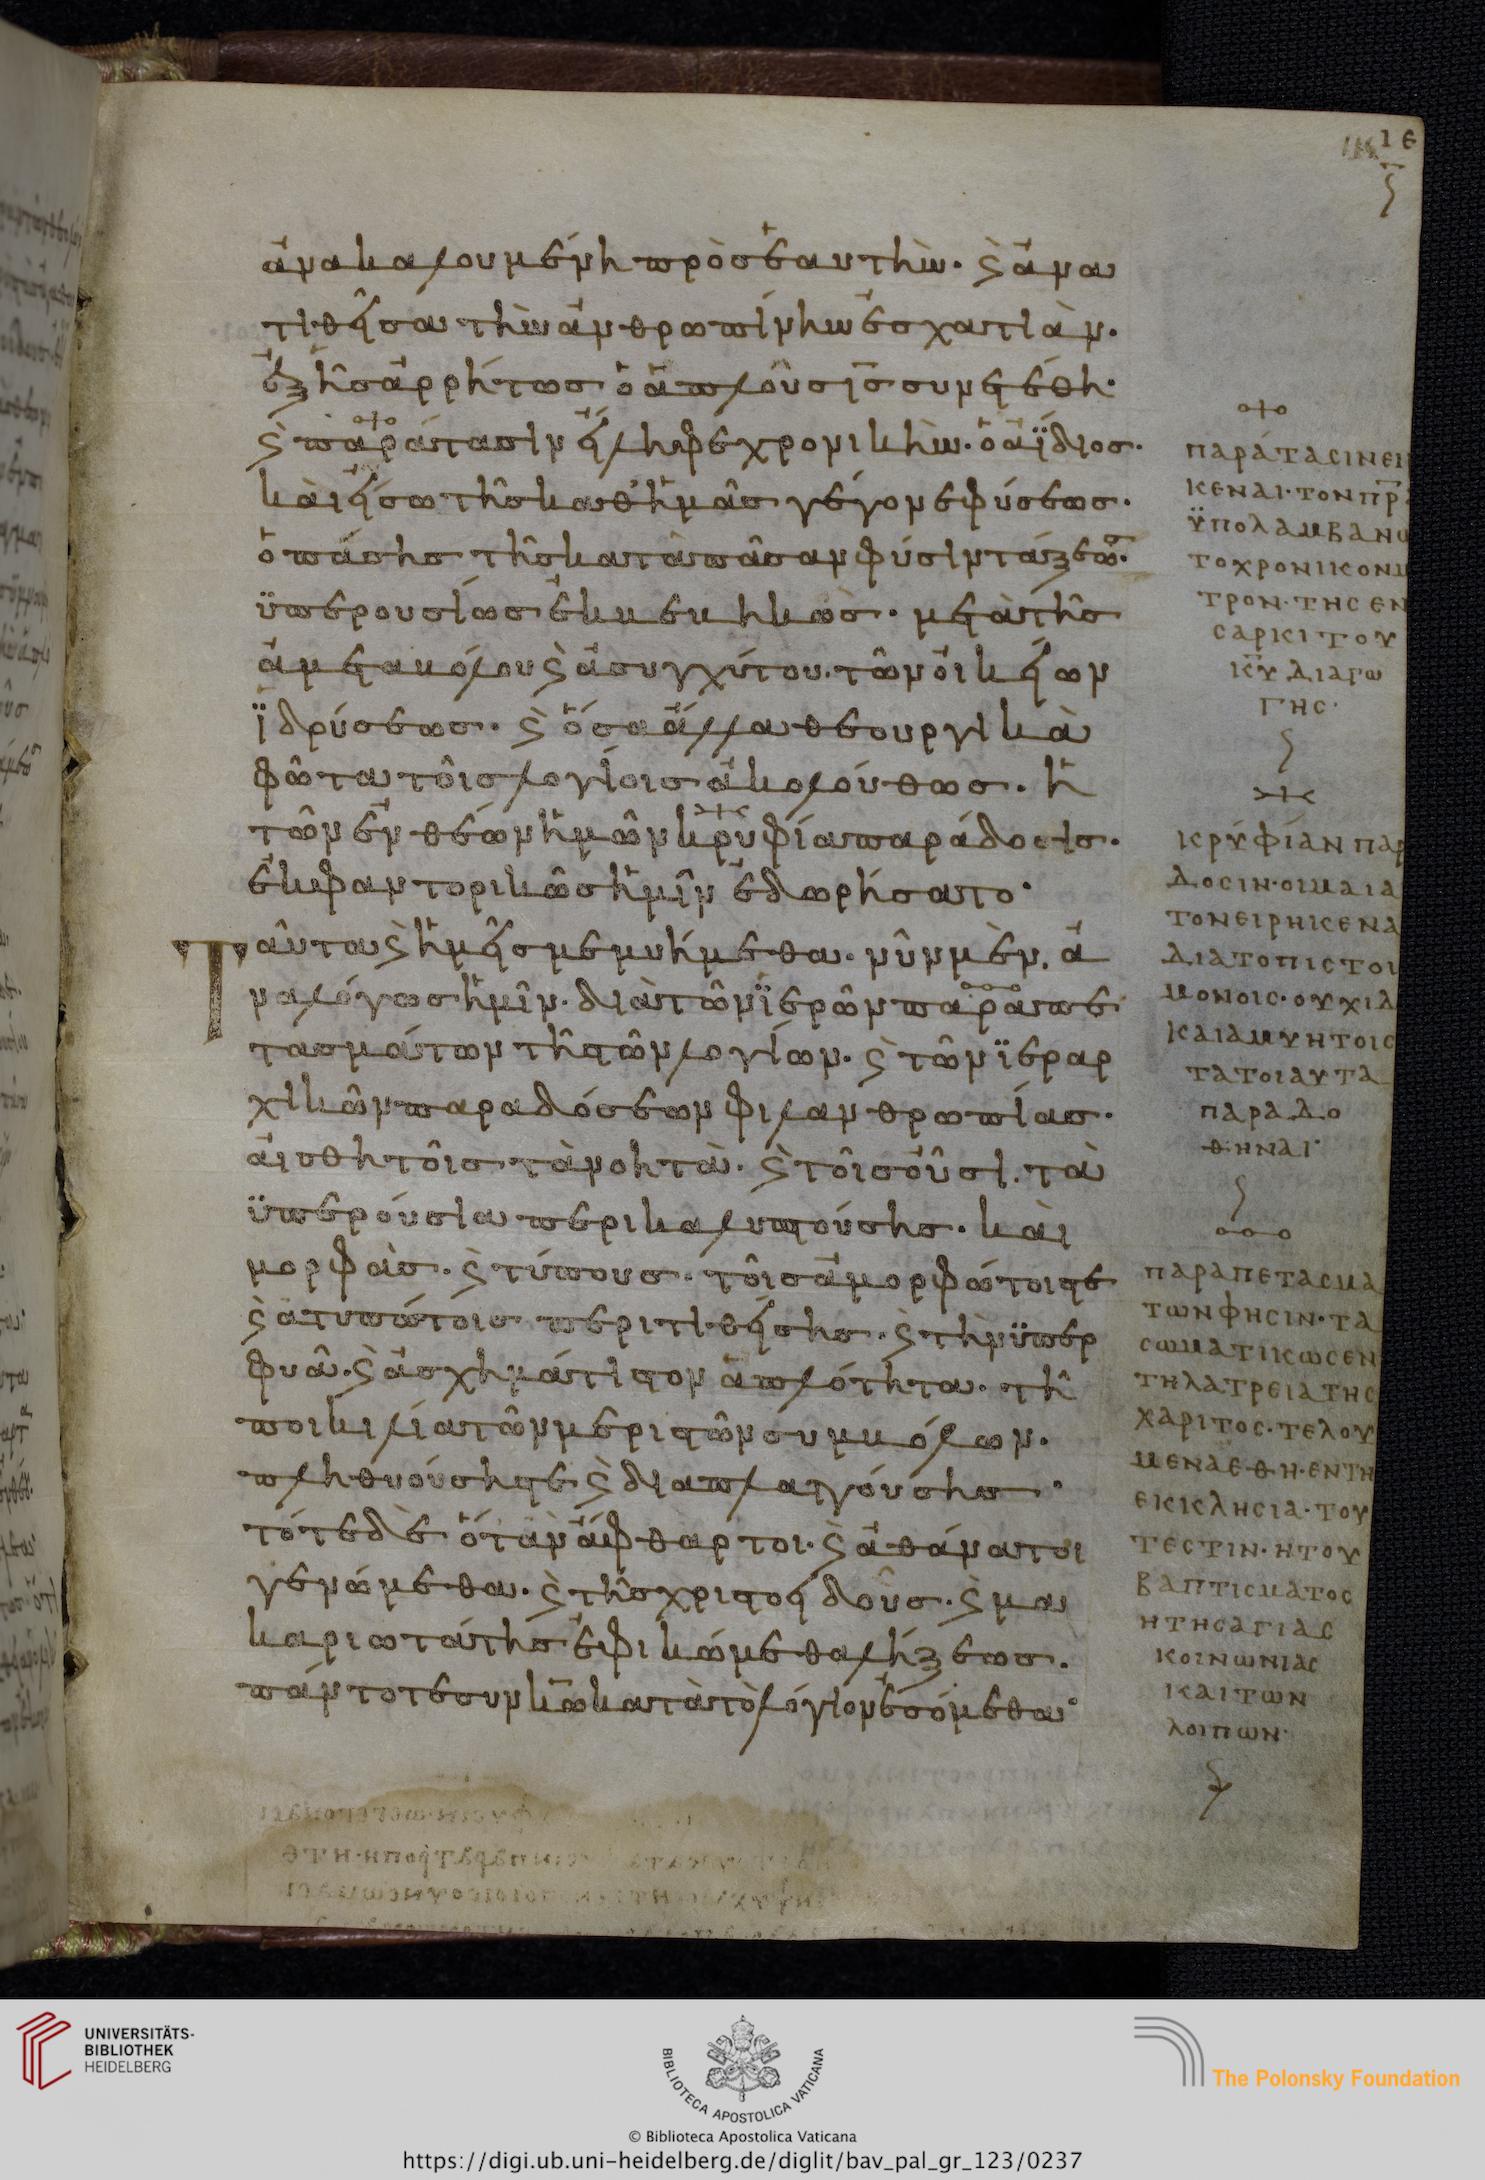 116
ἀνακαλουμένη πρὸς ἑαυτὴν· ϗ ἀνα
τιθεῖσα τὴν ἀνθρωπίνην ἐσχατιὰν·
ἐξ ἧς ἀρρήτως ὁ ἁπλοῦς ι̅ς̅ συνετέθη·
ϗ παράτασιν εἴληφε χρονικὴν· ὁ ἀΐδιος·
καὶ εἴσω τῆς καθ' ἡμᾶς γέγονε φύσεως·
ὁ πάσης τῆς κατὰ πᾶσαν φύσιν τάξεως
ὑπερουσίως ἐκβεβηκὼς· μετὰ τῆς
ἀμεταβόλου ϗ ἀσυγχύτου· τῶν οἰκείων
ϊδρύσεως· ϗ ὅσα ἄλλα θεουργικὰ
φῶτα τοῖς λογίοις ἀκολούθως· ἡ
τῶν ἐνθέων ἡμῶν κρυφία παράδοσις·
ἐκφαντορικῶς ἡμῖν ἐδωρήσατο·
Ταῦτα ϗ ἡμεῖς μεμυήμεθα· νῦν μὲν, ἀ
ναλόγως ἡμῖν· διὰ τῶν ϊερῶν παραπε
τασμάτων τῆς τῶν λογίων· ϗ τῶν ϊεραρ
χικῶν παραδόσεων φιλανθρωπίας·
αἰσθητοῖς τὰ νοητὰ· ϗ τοῖς οὖσι, τὰ
ϋπερούσια περικαλυπτούσης· καὶ
μορφὰς· ϗ τύπους· τοῖς ἀμορφώτοις τε
ϗ ατυπώτοις περιτιθείσης· ϗ τὴν ϋπερ
φυᾶ· ϗ ἀσχημάτιστον ἁπλότητα· τῆ
ποικιλία τῶν μεριστῶν συμβόλων·
πληθυούσης τε ϗ διαπλαττούσης·
τότε δὲ ὅταν ἄφθαρτοι· ϗ ἀθάνατοι
γενώμεθα· ϗ τῆς χριστοειδοῦς· ϗ μα
καριωτάτης ἐφικώμεθα λήξεως·
πάντοτε συν κ̅ω̅ κατὰ τὸ λόγιον ἐσόμεθα·
παράτασιν ει
κεναι· τον π̅ρ̅
ϋπολαμβανω
το χρονικον μ
τρον· της εν
σαρκι του
κ̅υ̅ διαγω
γης·
κρύφίαν παρ
δοσιν· οιμαι α
τον ειρηκενα
δια το πιστοι
μονοις· ουχι δ
και αμυητοις
τα τοιαυτα
παραδο
θηναι·
παραπετασμα
των φησιν· τα
σωματικως εν
τη λατρεια της
χάριτος· τελου
μενα εθη· εν τη
εκκλησια· του
τεστιν· η του
βαπτισματος
η της αγιας
κοινωνιας
και των
λοιπων·
UNIVERSITÄTS-
BIBLIOTHEK
HEIDELBERG
BIBLIOTECA APOSTOLICA VATICANA
The Polonsky Foundation
© Biblioteca Apostolica Vaticana
https://digi.ub.uni-heidelberg.de/diglit/bav_pal_gr_123/0237